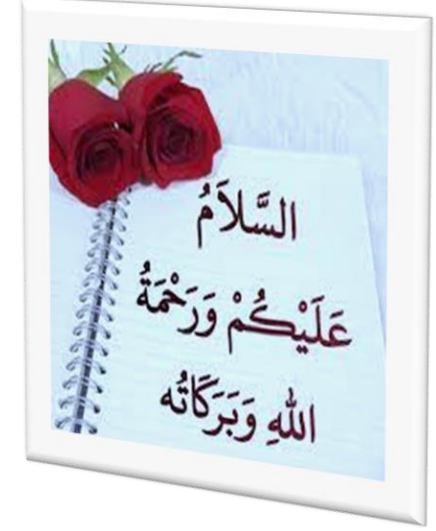 السَّلاَمُ
عَلَيْكُمْ وَرَحْمَةُ
اللهِ وَبَرَكَاتُه